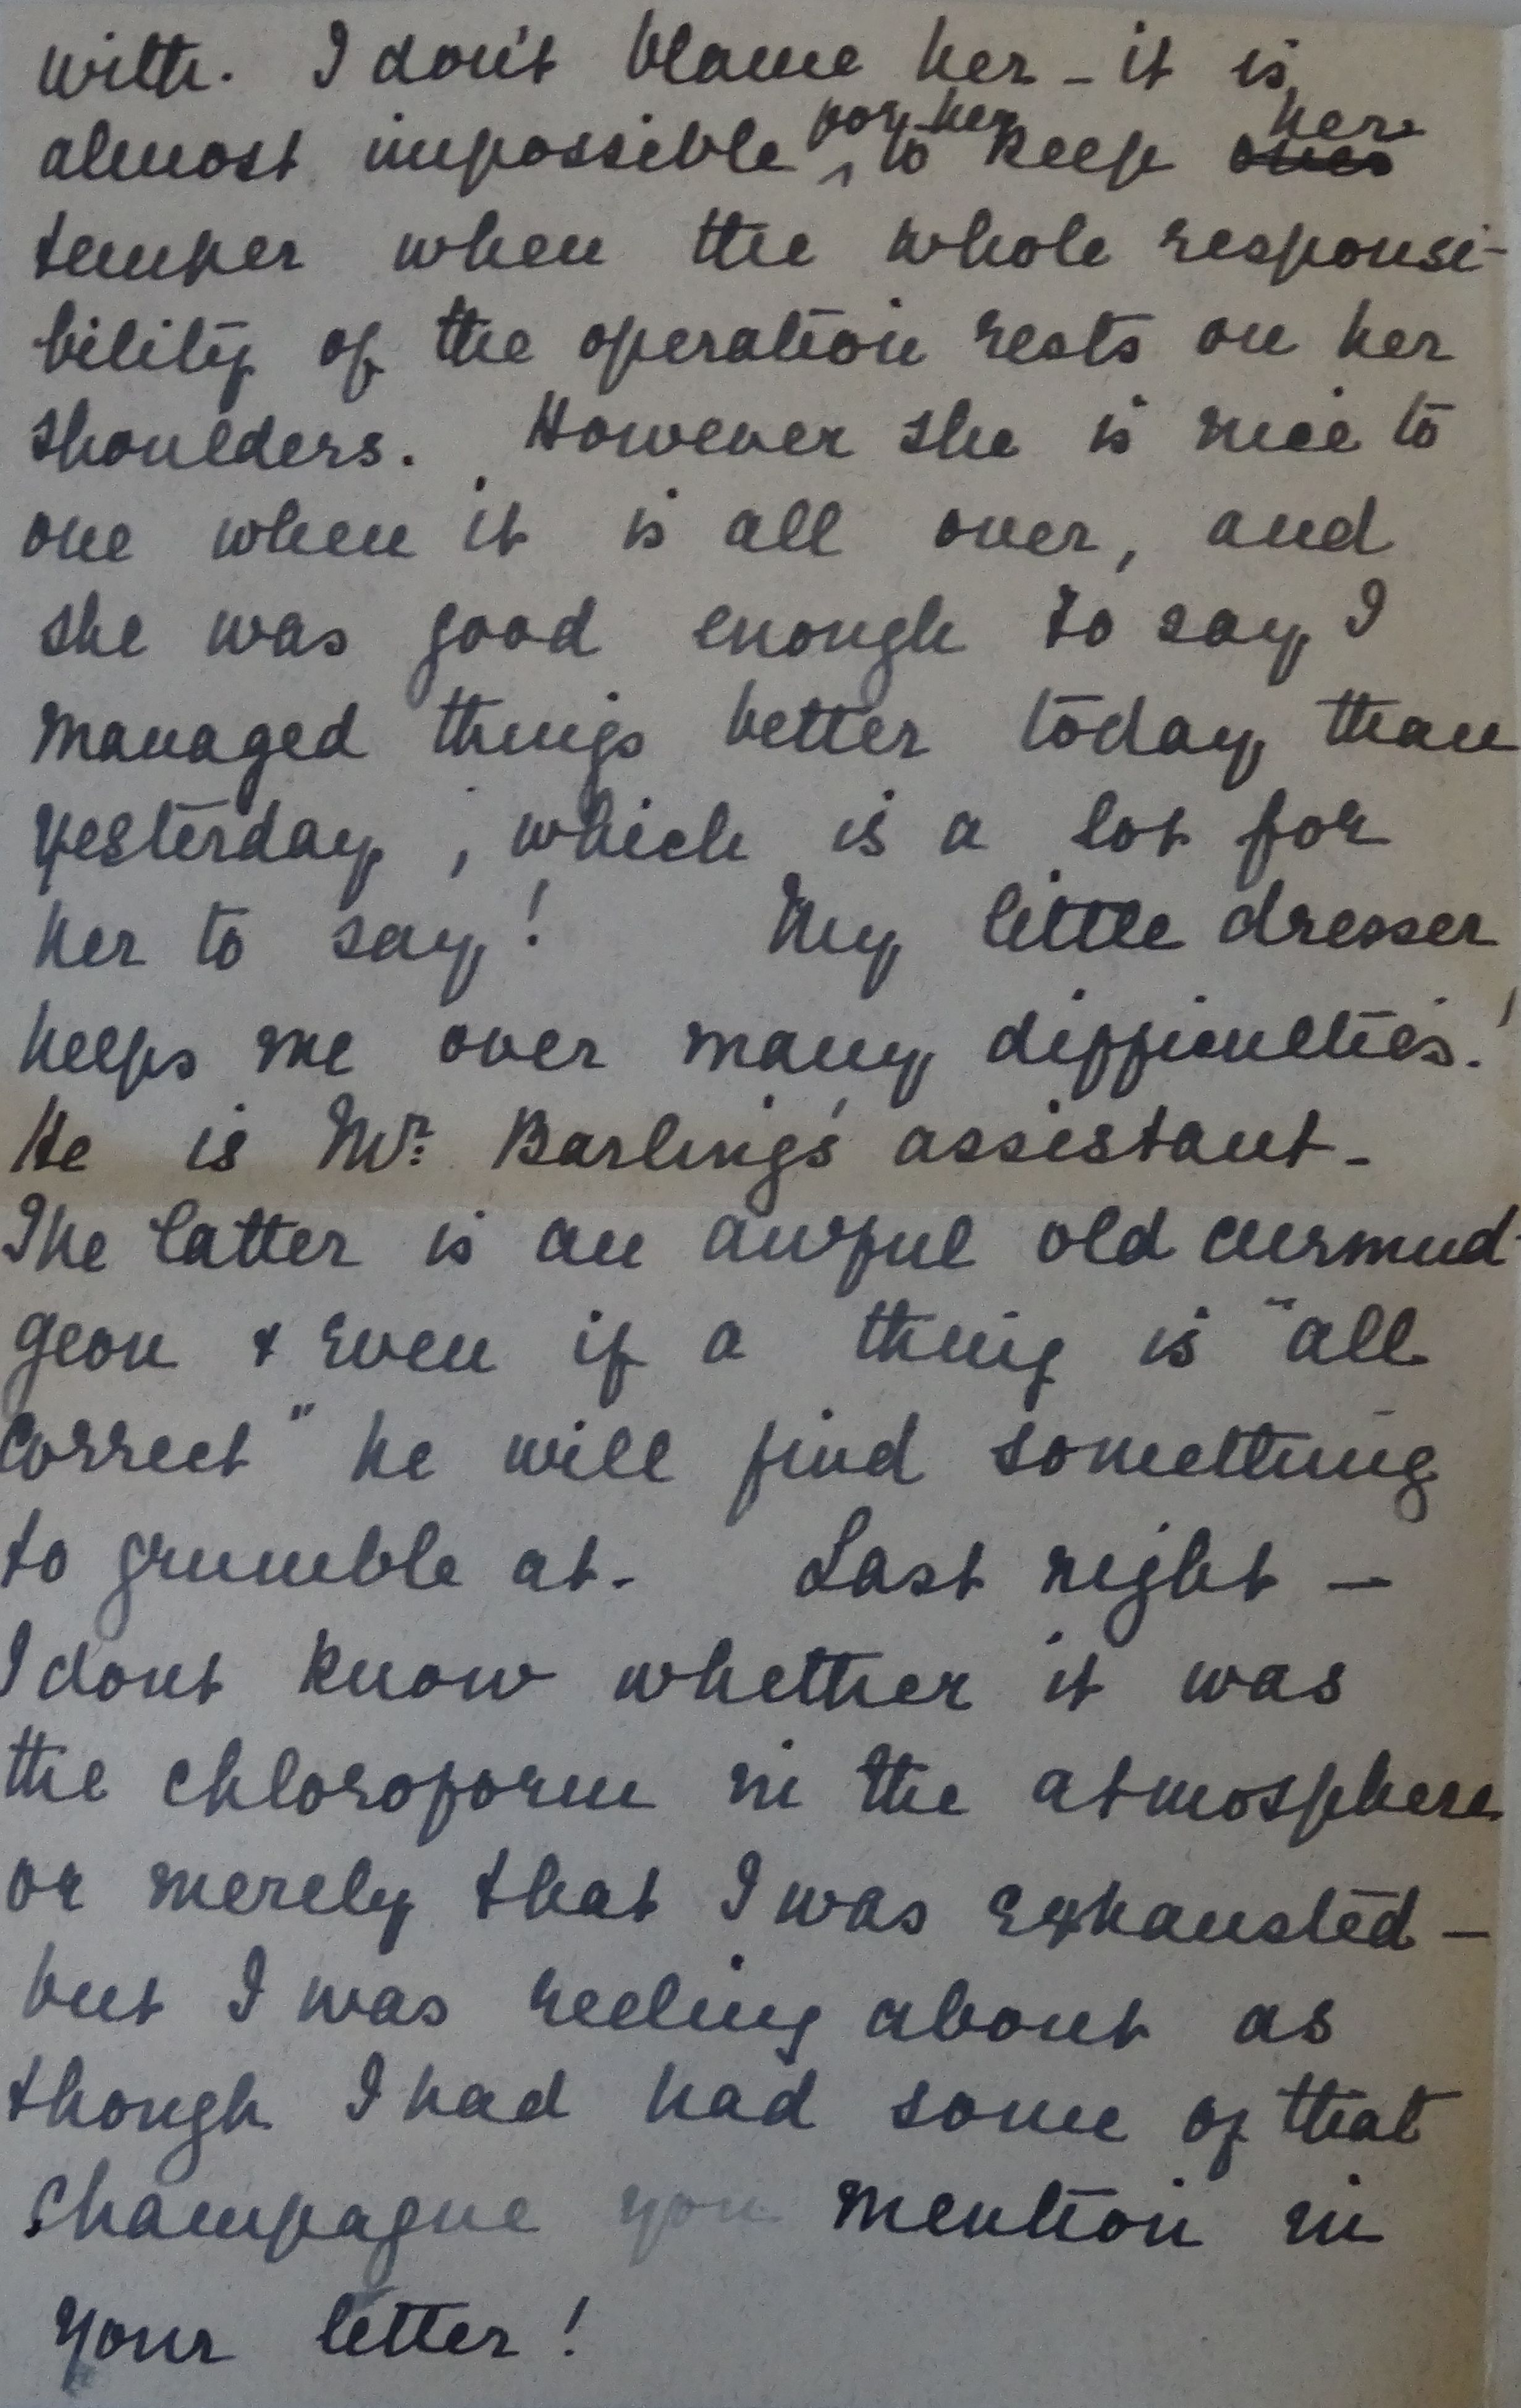 with. I don't blame her - it is
almost impossible for her to keep ones her
temper when the whole responsi-
bility of the operation rests on her
shoulders. However she is nice to
one when it is all over, and
she was good enough to say I
managed things better today than
yesterday, which is a lot for
her to say! My little dresser
helps me over many difficulties!
He is Mr. Barling's assistant -
The latter is an awful old curmud-
geon & even if a thing is "all
correct" he will find something
to grumble at. Last night —
I dont know whether it was
the chloroform in the atmosphere
or merely that I was exhausted —
but I was reeling about as
though I had had some of that
champagne you mention in
your letter!